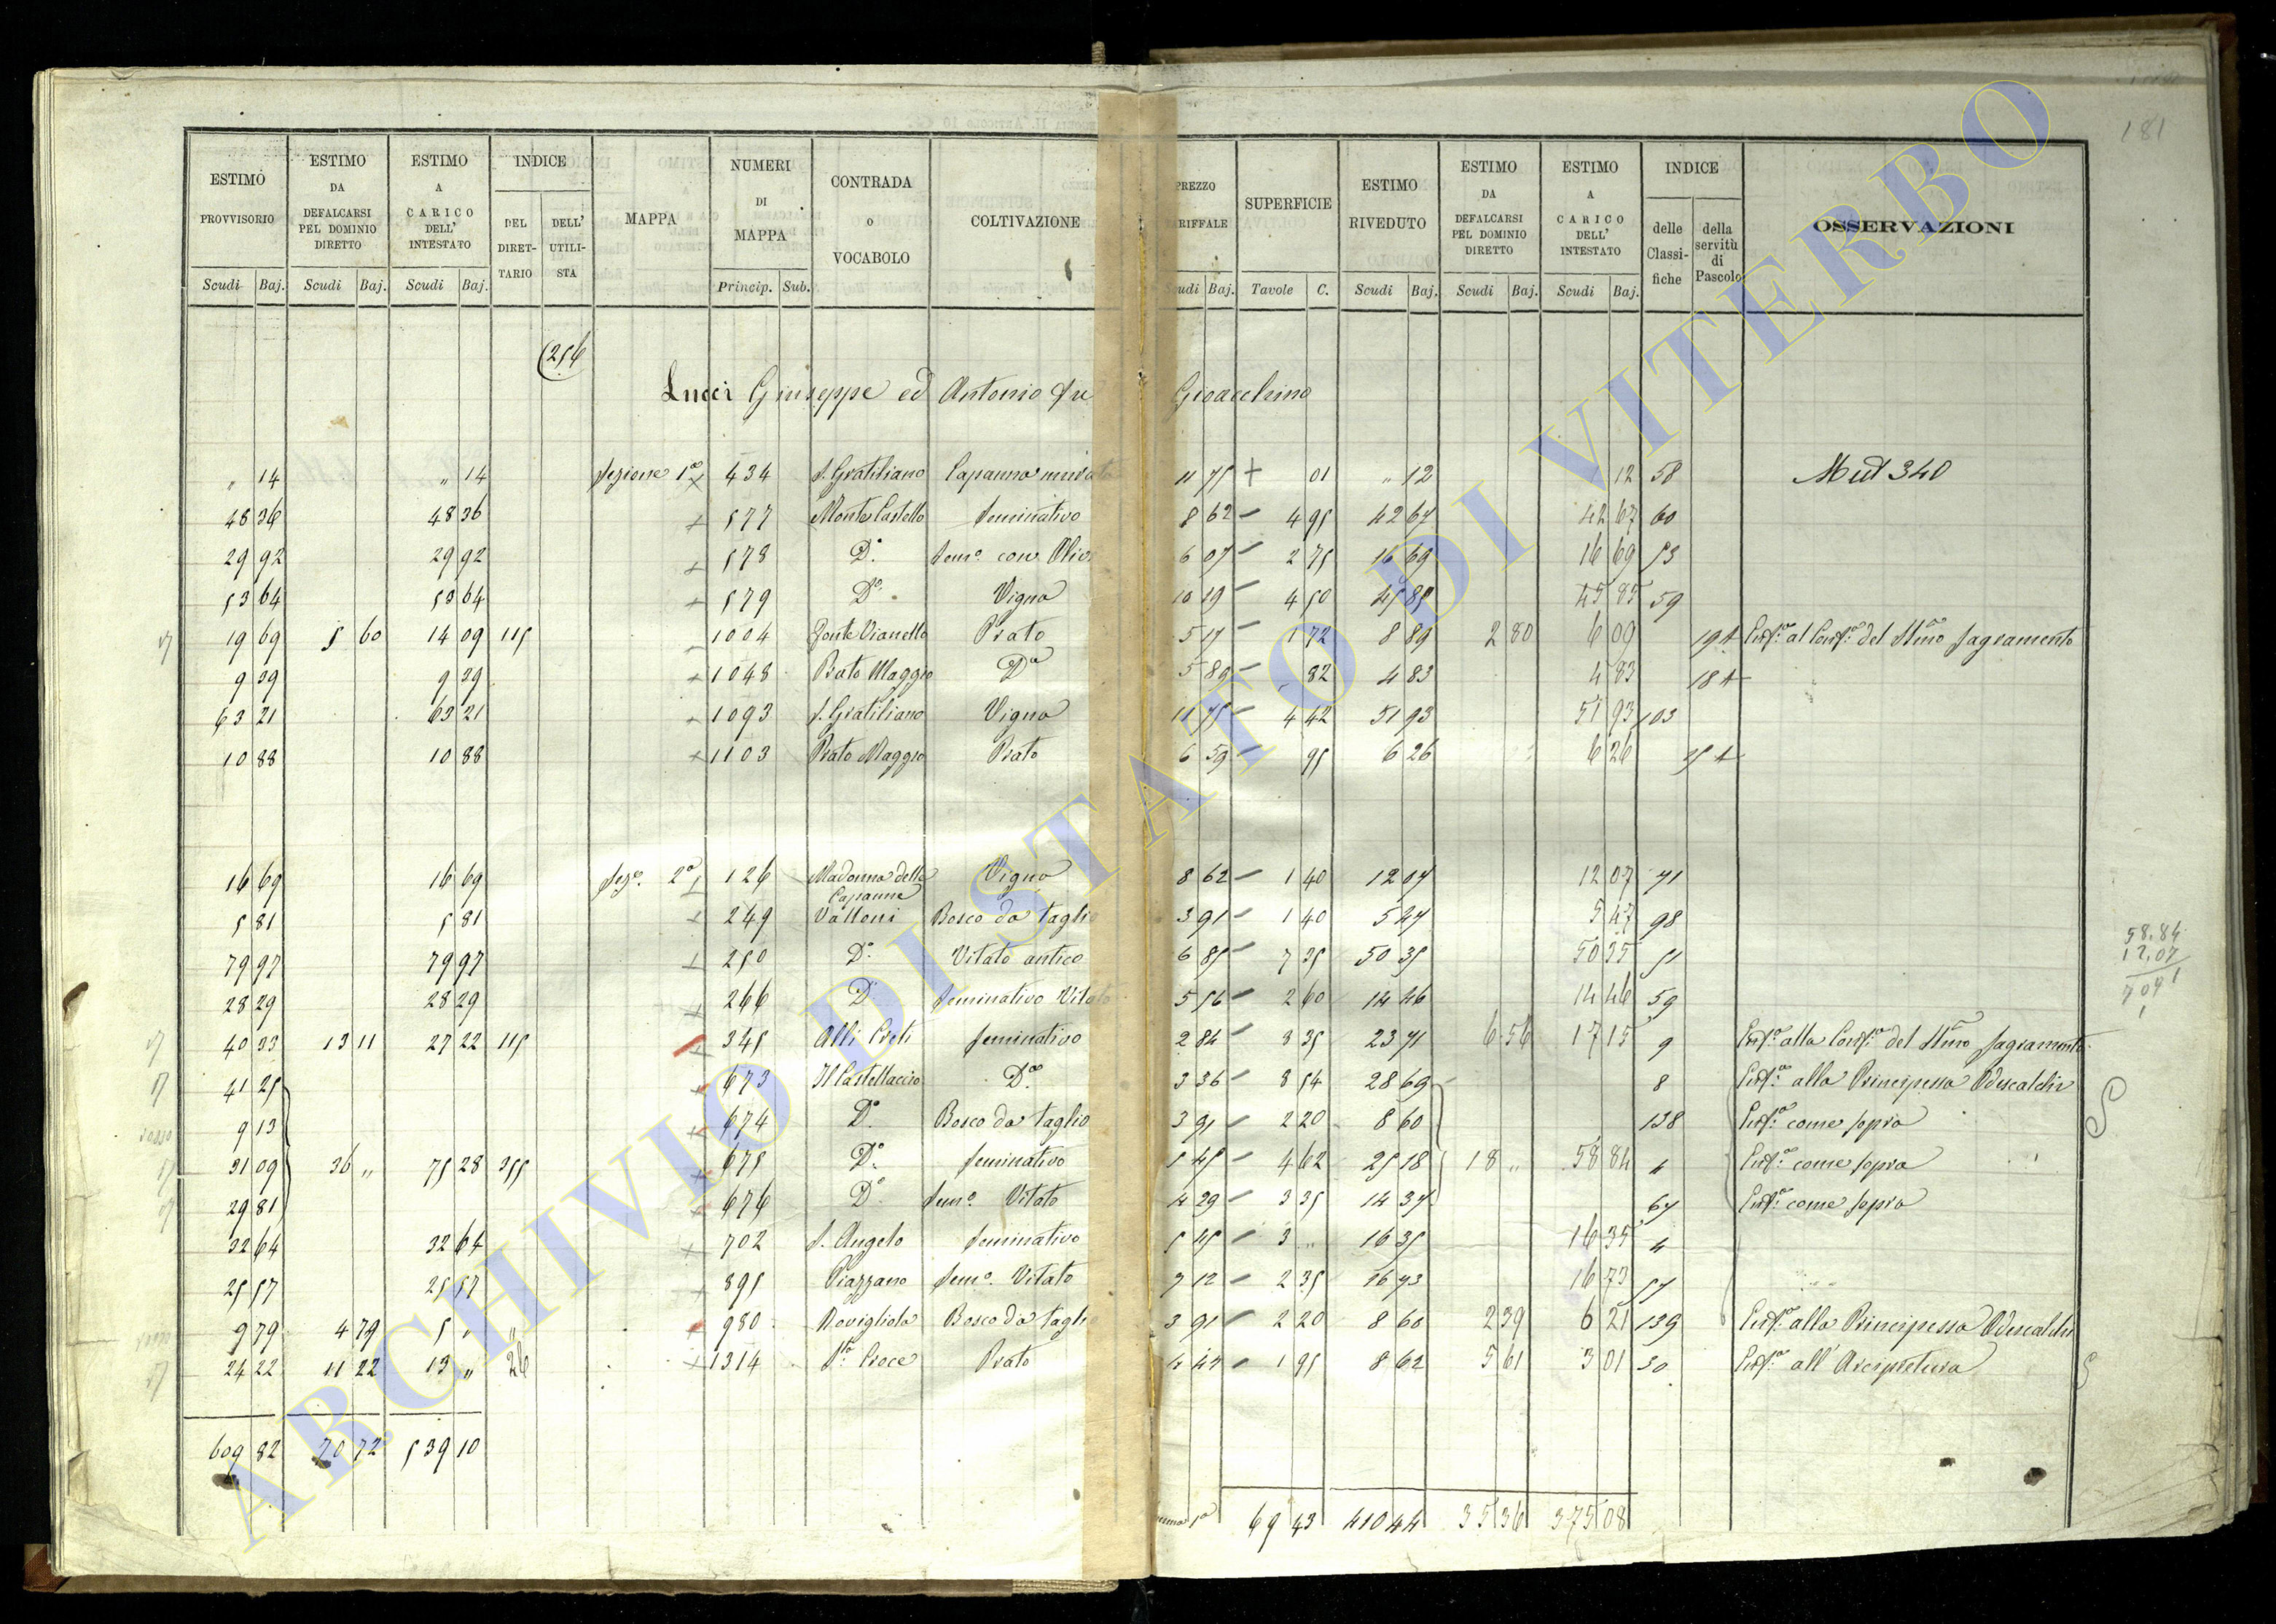 181
ESTIMO PROVVISORIO Scudi Baj.
ESTIMO DA DEFALCARSI PEL DOMINIO DIRETTO Scudi Baj.
ESTIMO A CARICO DELL' INTESTATO Scudi Baj.
INDICE DEL DIRETTARIO DELL' UTILISTA
MAPPA
NUMERI DI MAPPA Princip. Sub.
CONTRADA o VOCABOLO
COLTIVAZIONE
PREZZO TARIFFALE Scudi Baj.
SUPERFICIE Tavole C.
ESTIMO RIVEDUTO Scudi Baj.
ESTIMO DA DEFALCARSI PEL DOMINIO DIRETTO Scudi Baj.
ESTIMO A CARICO DELL' INTESTATO Scudi Baj.
INDICE delle Classifiche della servitù di Pascolo
OSSERVAZIONI
(256
Lucci Giuseppe ed Antonio fu Gioacchino
" 14 " 14 Sezione 1a + 434 S. Gratiliano Capanna murata 11 75 + 01 " 12 12 58 Mut 340
48 36 48 36 + 577 Monte Castello Seminativo 8 62 – 4 95 42 67 42 67 60
29 92 29 92 + 578 Do. Semo. con Olivi 6 07 – 2 75 16 69 16 69 53
53 64 53 64 + 579 Do. Vigna 10 19 – 4 50 45 85 45 85 59
19 69 5 60 14 09 115 1004 Fonte Vianello Prato 5 17 – 1 72 8 89 2 80 6 09 19 + al del SSmo Sagramento
9 29 9 29 + 1048 Prato Maggio Do 5 89 – 82 4 83 4 83 18 +
63 21 63 21 + 1093 S. Gratiliano Vigna 11 75 – 4 42 51 93 51 93 103
10 88 10 88 + 1103 Prato Maggio Prato 6 59 – 95 6 26 6 26 +
16 69 16 69 Sezo. 2a + 126 Madonna della Capanna Vigna 8 62 – 1 40 12 07 12 07 71
5 81 5 81 + 249 Valloni Bosco da taglio 3 91 – 1 40 5 47 5 47 98
79 97 79 97 + 250 Do. Vitato antico 6 85 – 7 35 50 35 50 35 51
28 29 28 29 + 266 Do Seminativo Vitato 5 56 – 2 60 14 46 14 46 59
40 33 13 11 27 22 115 + 345 Alli Preti Seminativo 2 84 – 8 35 23 71 6 56 17 15 9 alla del SSmo Sagramento
41 25 + 673 Il Castellaccio Do. 3 36 – 8 54 28 69 8 alla Principessa Odescalchi
9 13 + 674 Do. Bosco da taglio 3 91 – 2 20 8 60 138 come sopra
31 09 36 " 75 28 355 + 675 Do. Seminativo 5 45 – 4 62 25 18 18 " 58 84 4 come sopra
29 81 + 676 Do. Semo. Vitato 4 29 – 3 35 14 37 67 come sopra
32 64 32 64 + 702 S. Angelo Seminativo 5 45 – 3 " 16 35 16 35 4
25 57 25 57 + 895 Piazzano Semo. Vitato 7 12 – 2 35 16 73 16 73 57
9 79 4 79 5 " " + 980 Rovigliola Bosco da taglio 3 91 – 2 20 8 60 2 39 6 21 139 alla Principessa Odescalchi
24 22 11 22 13 " 26 + 1314 Sta. Croce Prato 4 42 – 1 95 8 62 5 61 3 01 30 all' Arcipretura
58.84
12.07
609 82 70 72 539 10
69 43 410 44 35 36 375 08
ARCHIVIO DI STATO DI VITERBO